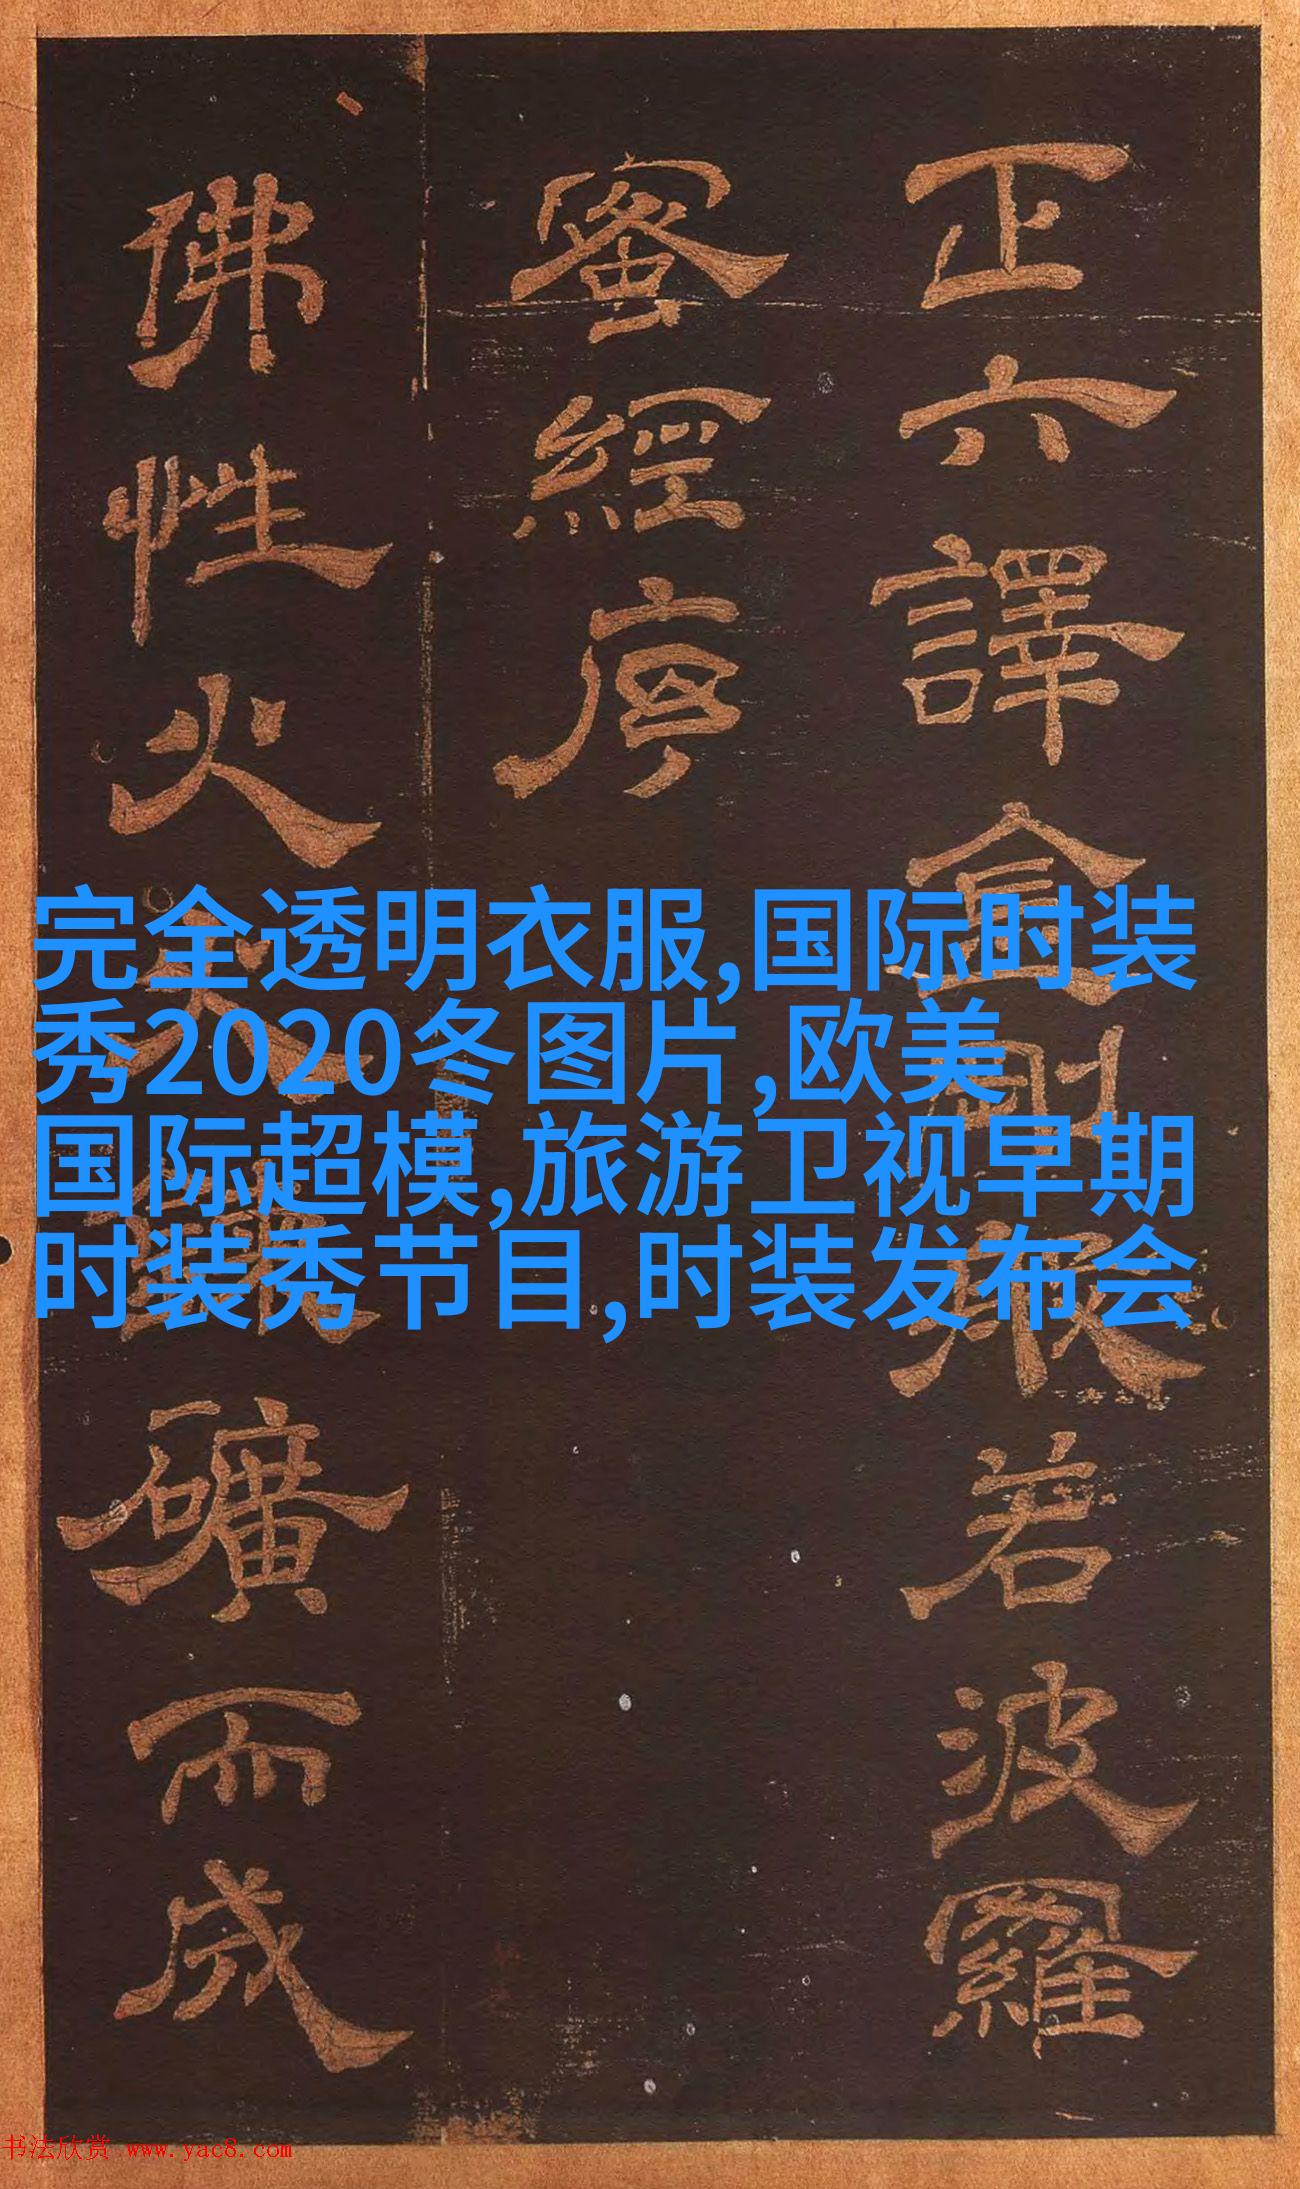 正六譯金剛般若波羅
蜜經序
佛性火礦而成
完全透明衣服,国际时装
秀2020冬图片,欧美
国际超模,旅游卫视早期
时装秀节目,时装发布会
书法欣赏 www.yac8.com